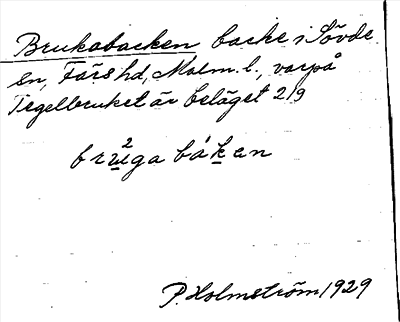 Brukabacken backe i Sövde
sn, Färs hd, Malm. l., varpå
Tegelbruket är beläget 2/9
bru²ga bákan
P. Holmström 1929